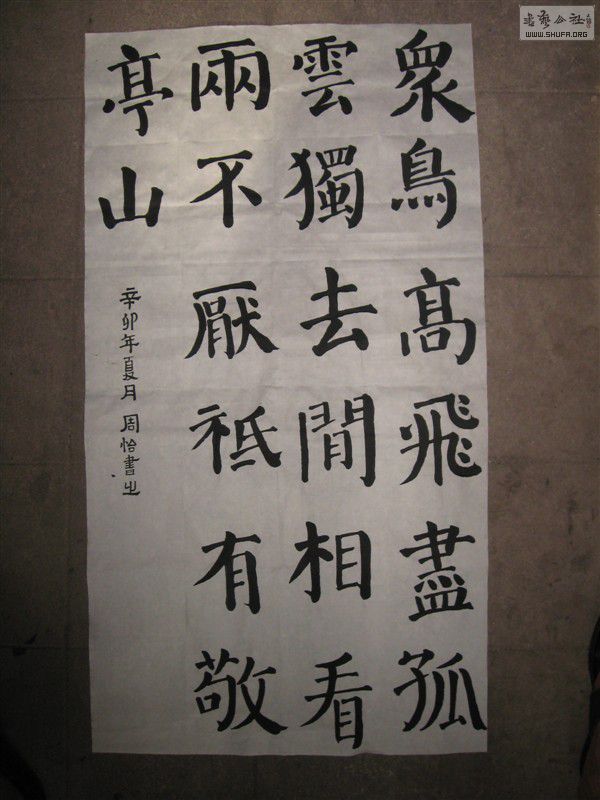 眾鳥高飛盡孤
雲獨去閒相看
兩不厭祗有敬
亭山
辛卯年夏月周怡書之
書藝公社
WWW.SHUFA.ORG